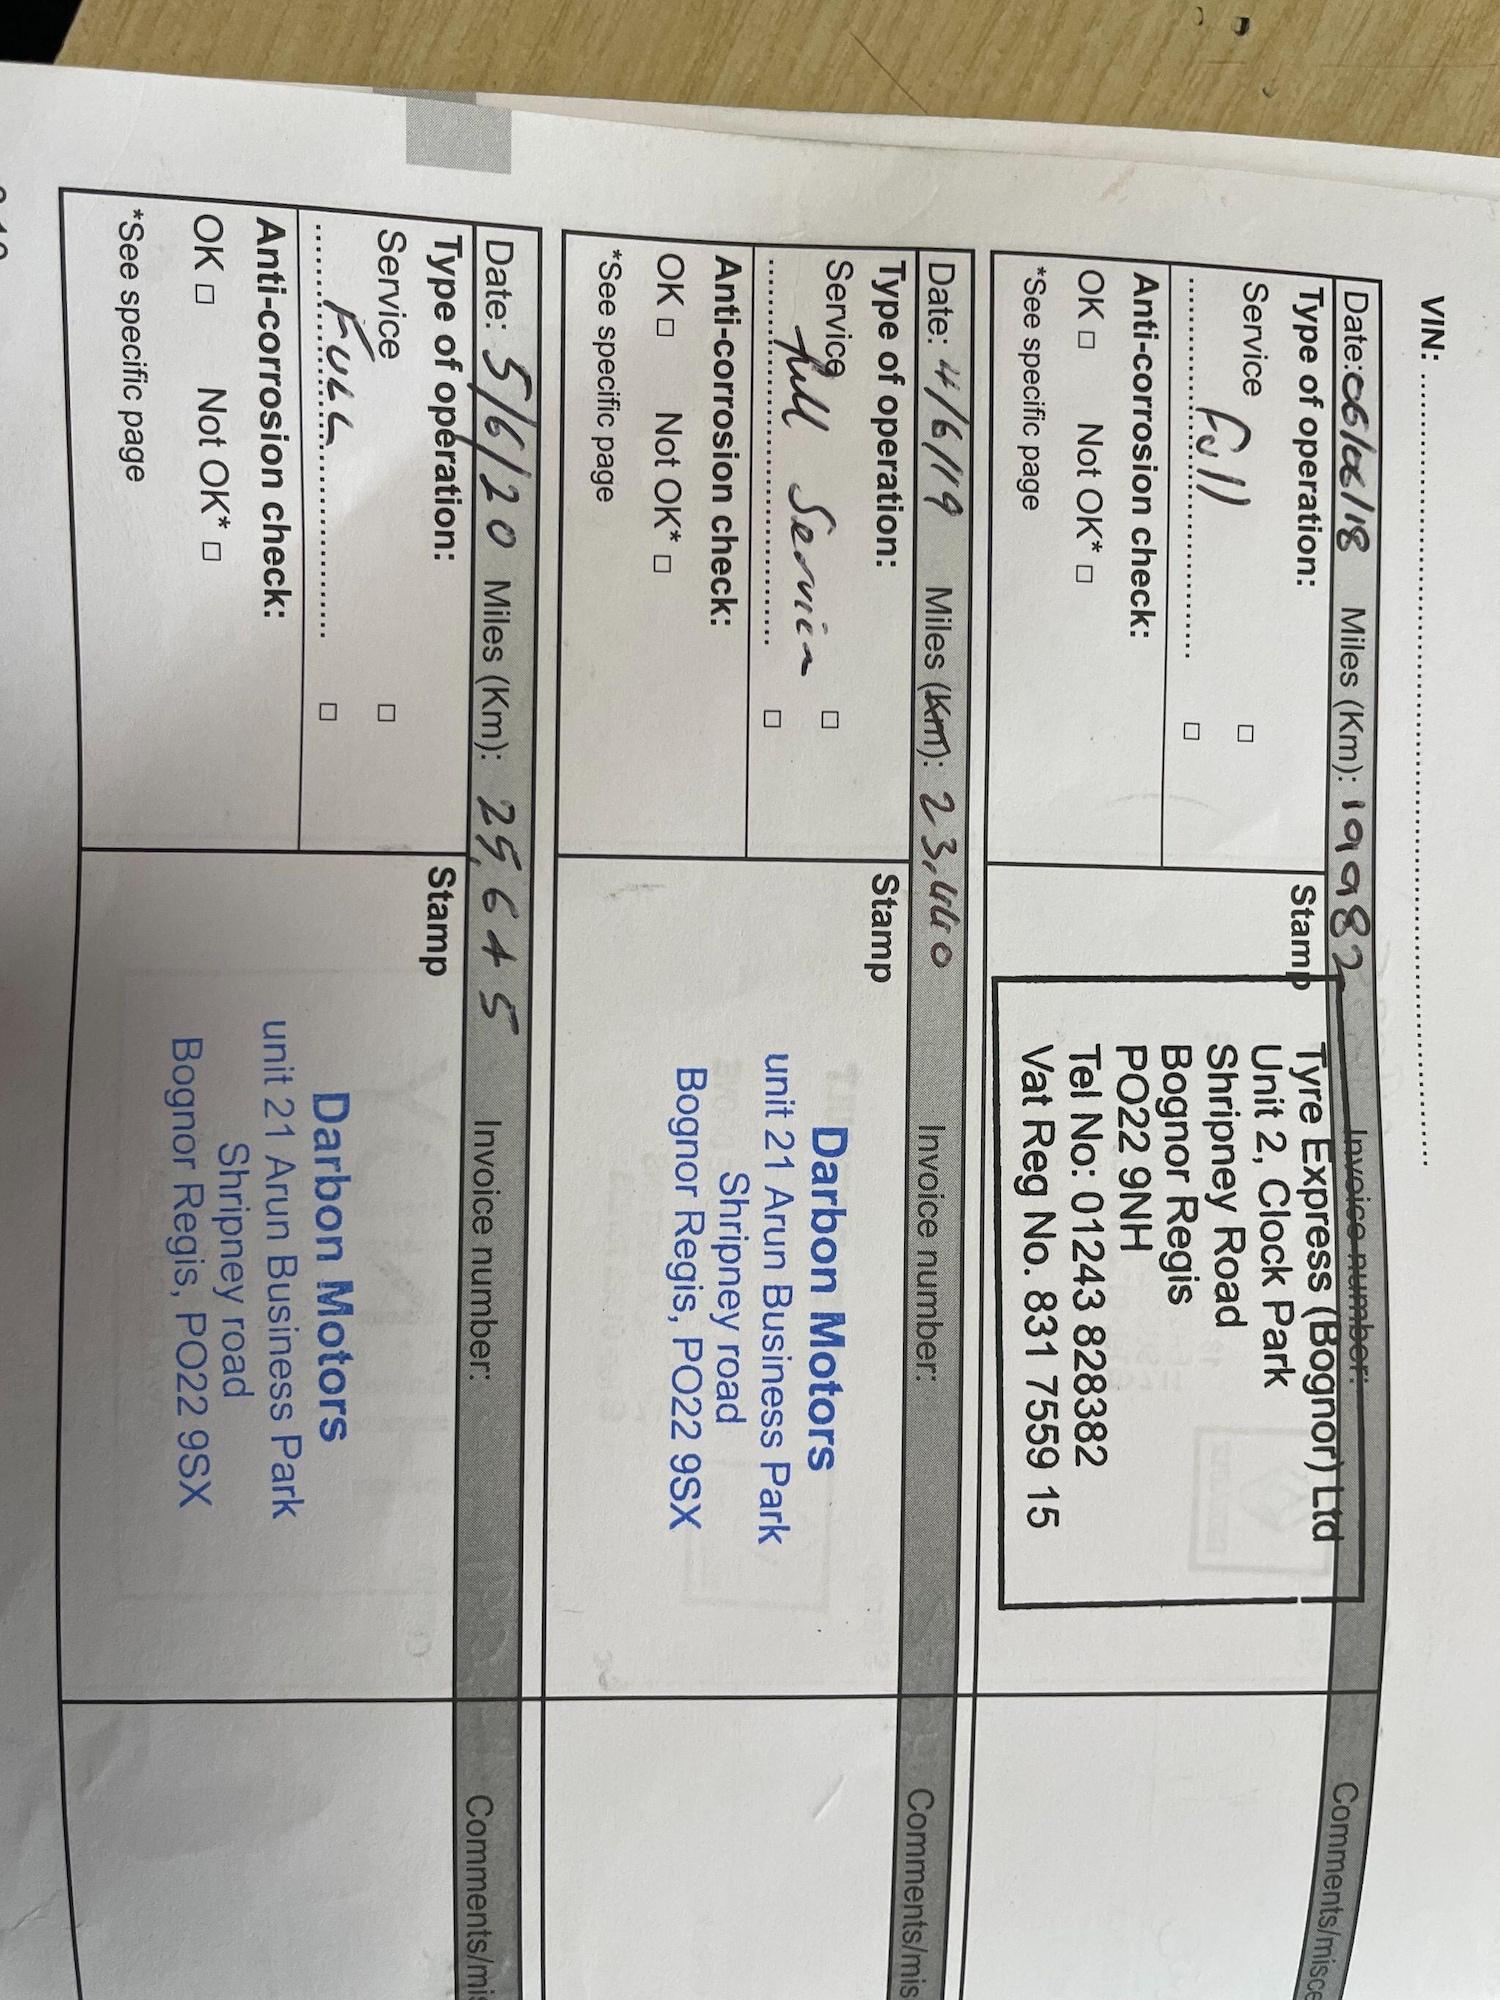 VIN: ........................................
Date: 06/06/18 Miles (Km): 19982 Invoice number: Comments/misce
Type of operation:
Service □
Full □
Anti-corrosion check:
OK □ Not OK* □
*See specific page
Stamp
Tyre Express (Bognor) Ltd
Unit 2, Clock Park
Shripney Road
Bognor Regis
PO22 9NH
Tel No: 01243 828382
Vat Reg No. 831 7559 15
Date: 4/6/19 Miles (Km): 23,440 Invoice number: Comments/mis
Type of operation:
Service □
full Service □
Anti-corrosion check:
OK □ Not OK* □
*See specific page
Stamp
Darbon Motors
unit 21 Arun Business Park
Shripney road
Bognor Regis, PO22 9SX
Date: 5/6/20 Miles (Km): 25,645 Invoice number: Comments/mis
Type of operation:
Service □
FULL □
Anti-corrosion check:
OK □ Not OK* □
*See specific page
Stamp
Darbon Motors
unit 21 Arun Business Park
Shripney road
Bognor Regis, PO22 9SX